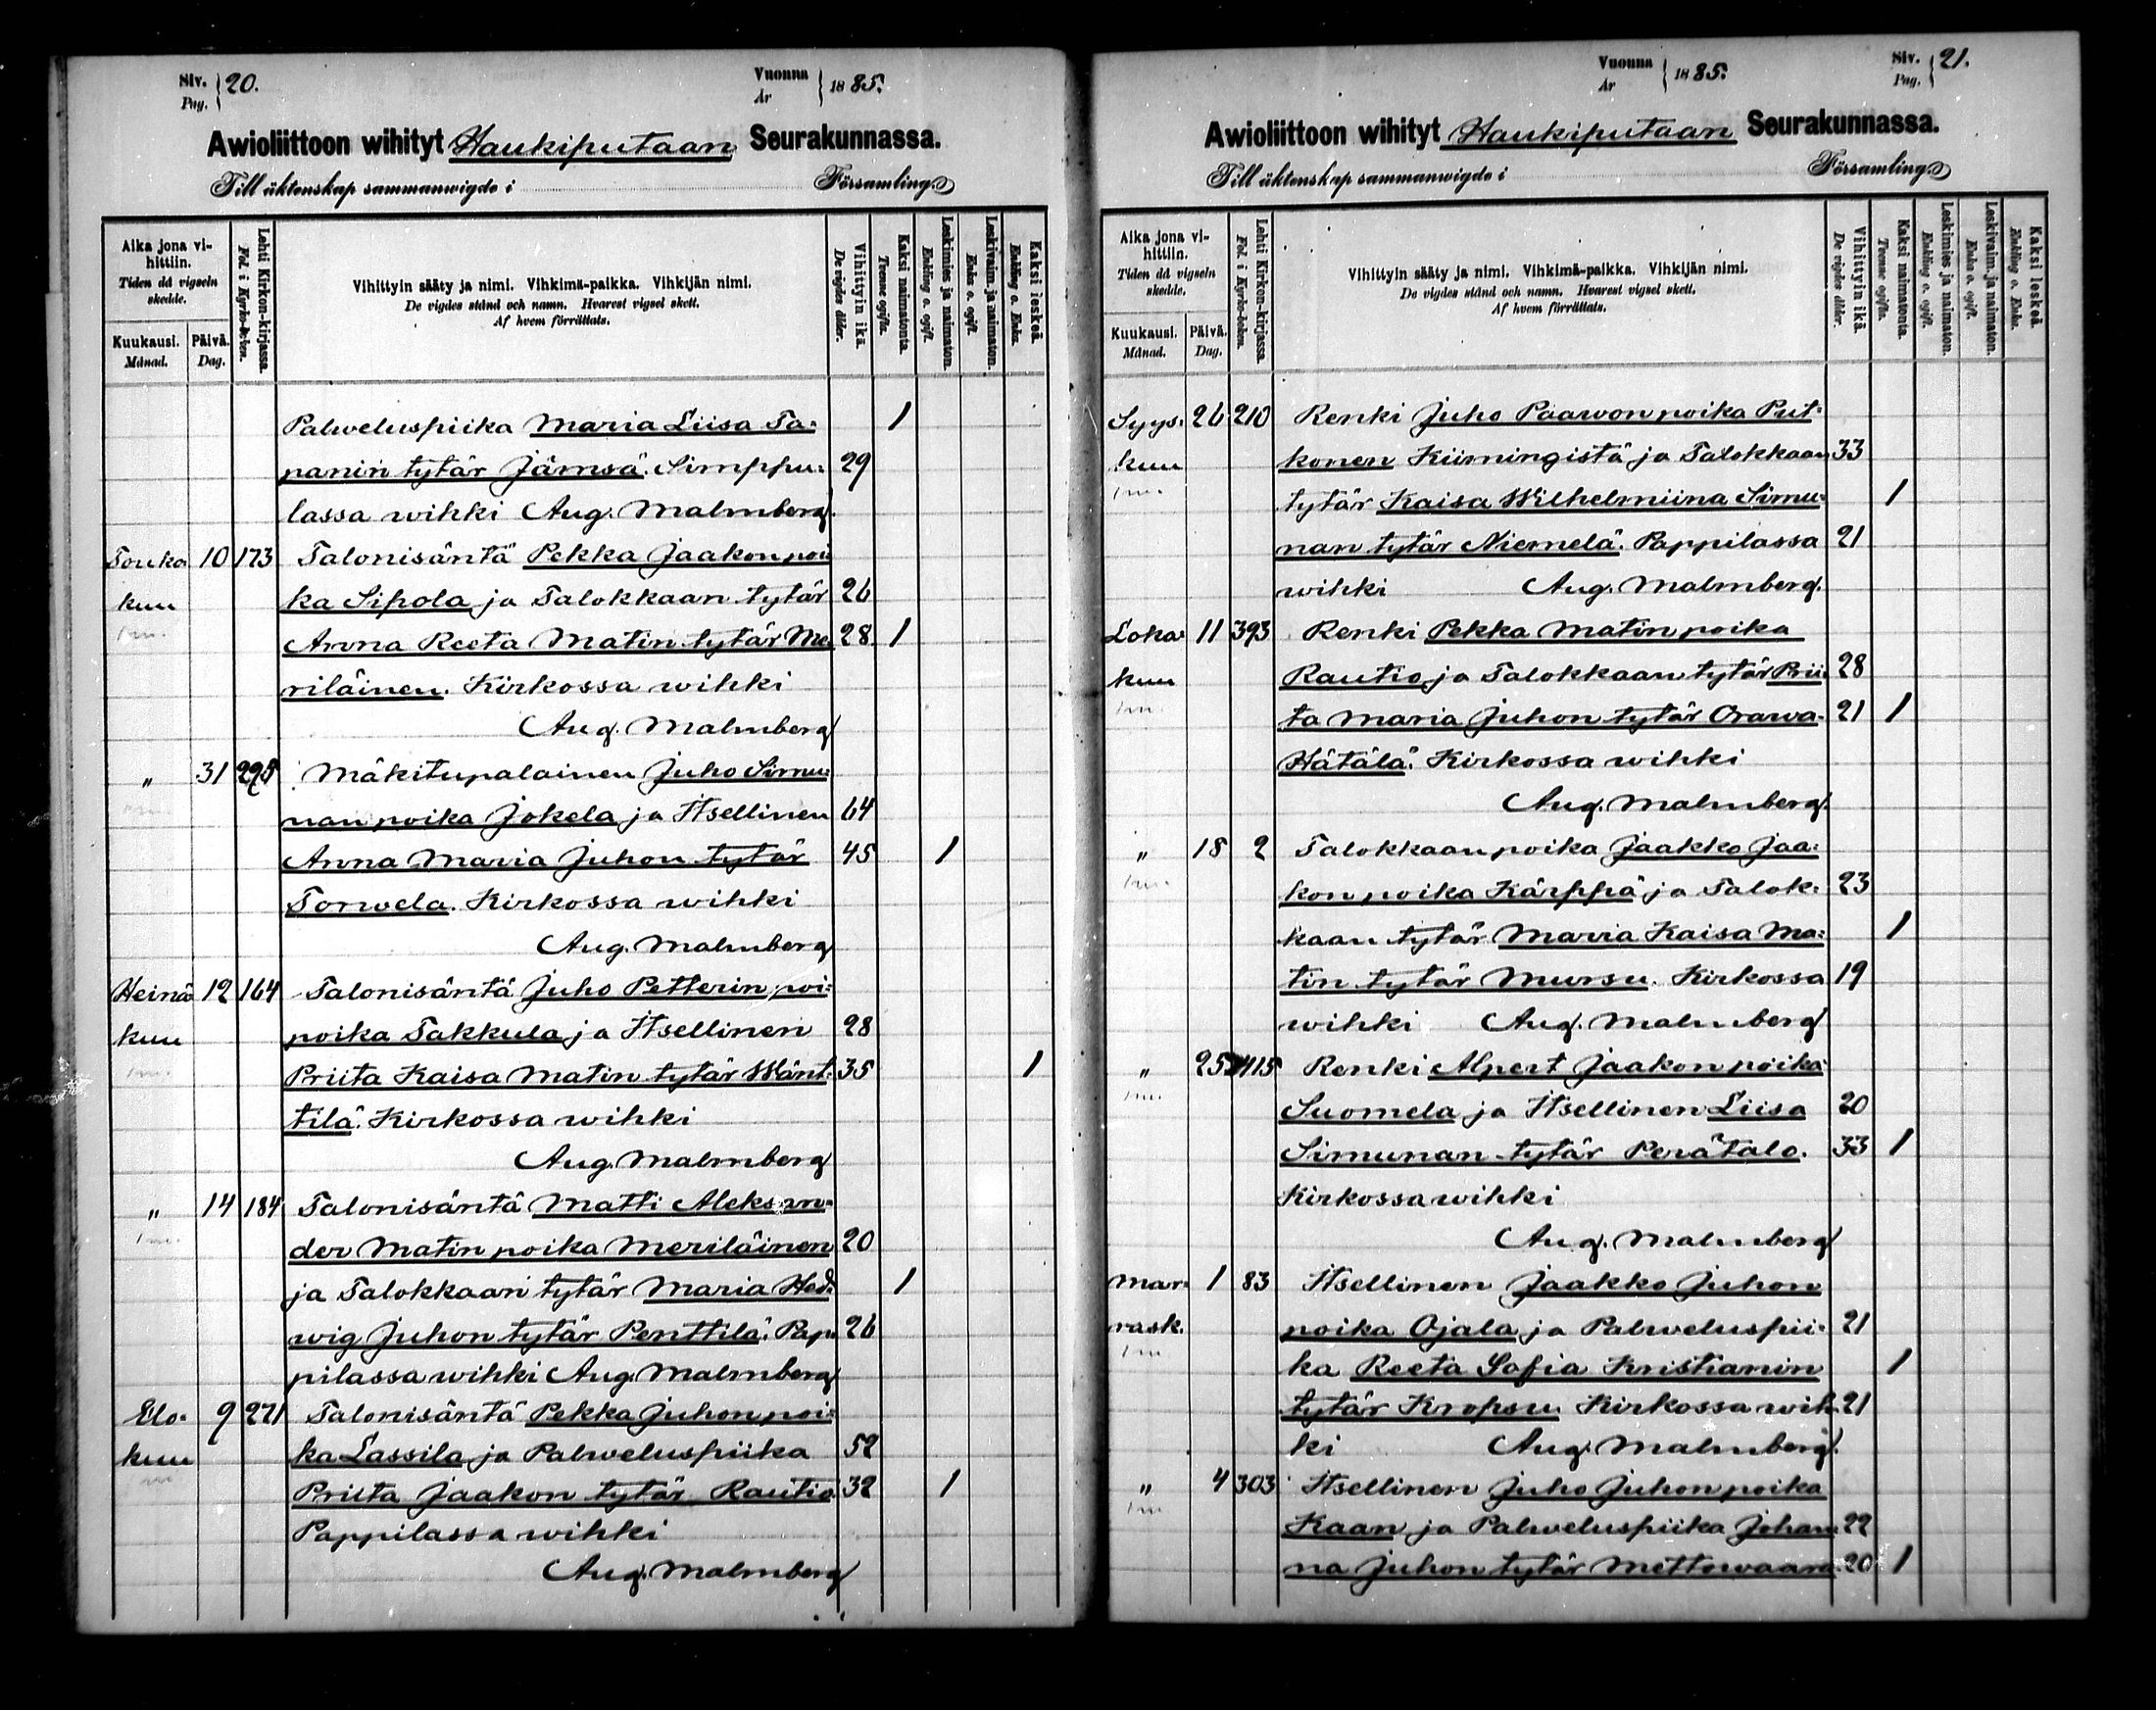 Siv. 20.
Pag.
Vuonna 1885.
År
Awioliittoon wihityt Haukiputaan Seurakunnassa.
Till äktenskap sammanwigde i Församling.
Aika jona vihittiin.
Tiden då vigseln skedde.
Kuukausi.
Månad.
Päivä.
Dag.
Lehti Kirkon-kirjassa.
Fol. i Kyrko-boken.
Vihittyin sääty ja nimi. Vihkimä-paikka. Vihkijän nimi.
De vigdes stånd och namn. Hvarest vigsel skett.
Af hvem förrättats.
Vihittyin ikä.
De vigdes ålder.
Kaksi naimatonta.
Tvenne ogifta.
Leskimies ja naimaton.
Enkling o. ogift.
Leskivaim. ja naimaton.
Enka o. ogift.
Kaksi leskeä.
Enkling o. Enka.
Palweluspiika Maria Liisa Ta= 1
panin tytär Jämsä. Simppu= 29
lassa wihki Aug. Malmberg.
Touko 10 173 Talonisäntä Pekka Jaakon poi
kuu ka Sipola ja Talokkaan tytär 26
Anna Reeta Matin tytär Me 28 1
riläinen. Kirkossa wihki
Aug. Malmberg
" 31 298 Mäkitupalainen Juho Simu=
nan poika Jokela ja Itsellinen 64
Anna Maria Juhon tytär 45 1
Torwela. Kirkossa wihki
Aug. Malmberg
Heinä 12 164 Talonisäntä Juho Petterin poi=
kuu poika Takkula ja Itsellinen 28
Priita Kaisa Matin tytär Wänt= 35 1
tilä. Kirkossa wihki
Aug. Malmberg
" 14 184 Talonisäntä Matti Aleksan=
der Matin poika Meriläinen 20
ja Talokkaan tytär Maria Hed= 1
wig Juhon tytär Penttilä. Pap 26
pilassa wihki Aug. Malmberg
Elo= 9 271 Talonisäntä Pekka Juhon poi=
kuu ka Lassila ja Palweluspiika 52
Priita Jaakon tytär Rautio 32 1
Pappilassa wihki
Aug. Malmberg
Vuonna 1885.
År
Siv. 21.
Pag.
Awioliittoon wihityt Haukiputaan Seurakunnassa.
Till äktenskap sammanwigde i Församling.
Aika jona vihittiin.
Tiden då vigseln skedde.
Kuukausi.
Månad.
Päivä.
Dag.
Lehti Kirkon-kirjassa.
Fol. i Kyrko-boken.
Vihittyin sääty ja nimi. Vihkimä-paikka. Vihkijän nimi.
De vigdes stånd och namn. Hvarest vigsel skett.
Af hvem förrättats.
Vihittyin ikä.
De vigdes ålder.
Kaksi naimatonta.
Tvenne ogifta.
Leskimies ja naimaton.
Enkling o. ogift.
Leskivaim. ja naimaton.
Enka o. ogift.
Kaksi leskeä.
Enkling o. Enka.
Syys= 26 210 Renki Juho Paawon poika Put=
kuu konen Kiimingistä ja Talokkaan 33
tytär Kaisa Wilhelmiina Simu= 1
nan tytär Niemelä. Pappilassa 21
wihki Aug. Malmberg.
Loka= 11 393 Renki Pekka Matin poika
kuu Rautio ja Talokkaan tytär Prii= 28
ta Maria Juhon tytär Orawa= 21 1
Hätälä. Kirkossa wihki
Aug. Malmberg.
" 18 2 Talokkaan poika Jaakko Jaa=
kon poika Kärppä ja Talok= 23
kaan tytär Maria Kaisa Ma= 1
tin tytär Mursu. Kirkossa 19
wihki Aug. Malmberg
" 25 415 Renki Alpert Jaakon poika
Suomela ja Itsellinen Liisa 20
Simunan tytär Perätalo. 33 1
Kirkossa wihki
Aug. Malmberg
Mar= 1 83 Itsellinen Jaakko Juhon
rask. poika Ojala ja Palweluspii= 21
ka Reeta Sofia Kristianin 1
tytär Kropsu Kirkossa wih 21
ki Aug. Malmberg.
" 4 303 Itsellinen Juho Juhon poika
Kaan ja Palweluspiika Johan= 22
na Juhon tytär Mettowaara 20 1